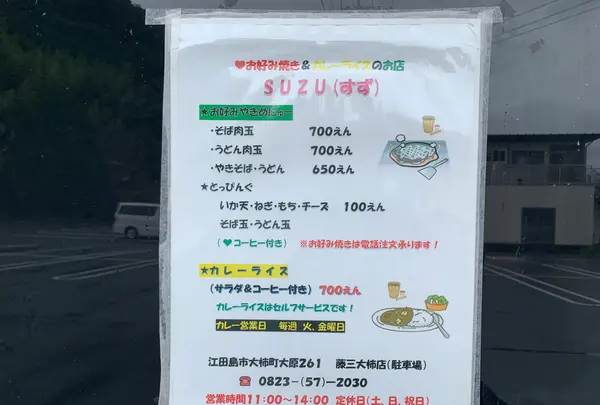 ♥お好み焼き&カレーライスのお店
SUZU(すず)
★お好みやきめにゅー
・そば肉玉 700えん
・うどん肉玉 700えん
・やきそば・うどん 650えん
★とっぴんぐ
いか天・ねぎ・もち・チーズ 100えん
そば玉・うどん玉
(♥コーヒー付き) ※お好み焼きは電話注文承ります!
★カレーライス
(サラダ&コーヒー付き) 700えん
カレーライスはセルフサービスです!
カレー営業日 毎週 火、金曜日
江田島市大柿町大原261 藤三大柿店(駐車場)
☎0823-(57)-2030
営業時間11:00~14:00 定休日(土、日、祝日)